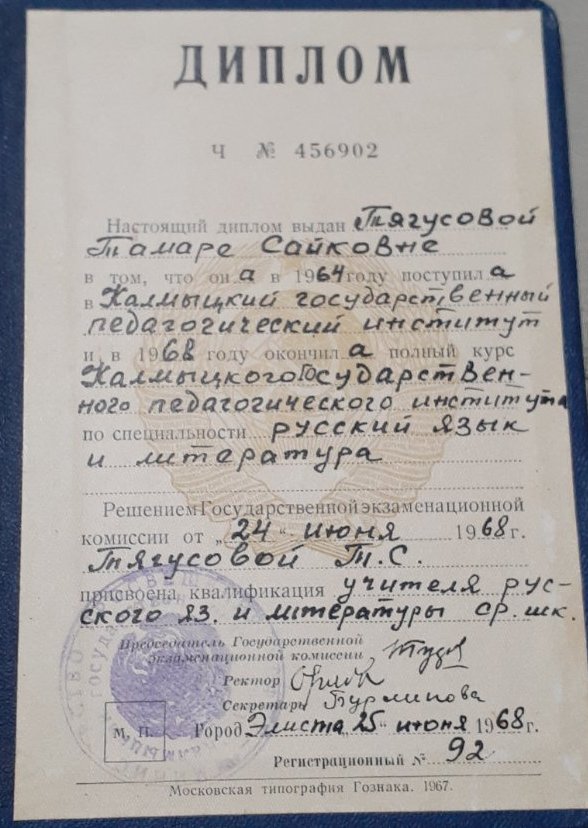 ДИПЛОМ
Ч № 456902
Настоящий диплом выдан Тягусовой
Тамаре Сайковне
в том, что он а в 1964 году поступил а
в Калмыцкий государственный
педагогический институт
и в 1968 году окончил а полный курс
Калмыцкого Государствен-
ного педагогического института
по специальности русский язык
и литература
Решением Государственной экзаменационной
комиссии от „24“ июня 1968 г.
Тягусовой Т.С.
присвоена квалификация учителя рус-
ского яз. и литературы ср. шк.
Председатель Государственной
экзаменационной комиссии
Ректор
Секретарь
М. П. Город Элиста, 25 „ июня 1968 г.
Регистрационный № 92
Московская типография Гознака. 1967.